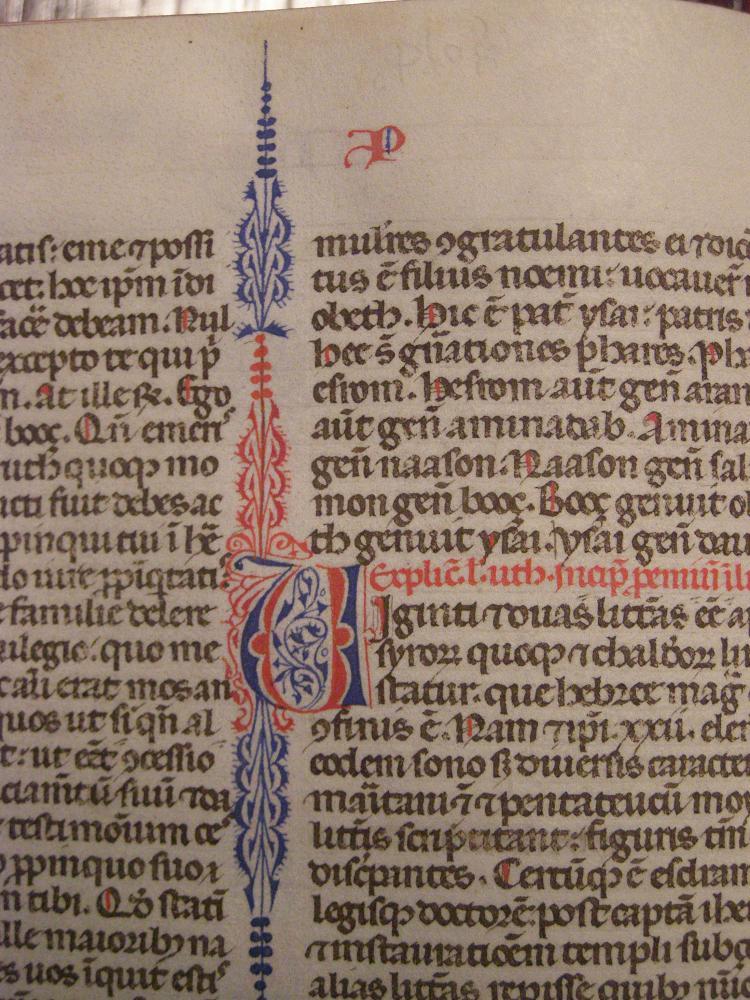 P
atis: eme ⁊ possi
cet: hoc ip̄m ībi
facē debeam. Nul
excepto te qui p̄
n. At ille R̵. Ego
booz. Qn̄ emeris
ruth quoqꝫ mo
fuit debes ac
pinqui tui ī hē
familie delere
uilegio. quo me
erat mos an
quos ut siqn̄ al
t: ut eēt ꝯcessio
suū
testimōium
ꝓpinquo suo
n tibi. Qꝺ stati
ille maioribꝫ na
es uos īquit
mulieres ꝯgratulantes ei ⁊ dicē
tus ē filius noemi: uocauer̄
obeth. Hic ē pat̄ ysai: patris
hee s̄ gn̄ationes phares. Pha
esrom. Hesrom aūt gen̄ aran
aūt gen̄ aminadab. Amina
gen̄ naason. Naason gen̄ sal
mon gen̄ booz. Booz genuit o
th genuit ysai. ysai gen̄ dau
Explic̄. l. uth. Incip̄
Uiginti ⁊ duas litt̄as eē ap
syroꝝ quoqꝫ ⁊ lin
statur. que hebree maḡ
ꝯfinis ē. Nam ⁊ ip̄i. xxii. elem
eodem sono sꝫ diuersis caracter
⁊ pentateucū moy
litt̄is scriptitant: figuris tm̄
Certūqꝫ ē esdram
legisqꝫ doctorē: post captā ihe
⁊ instauratioēm templi sub
alias litt̄as repisse quibꝫ nūc